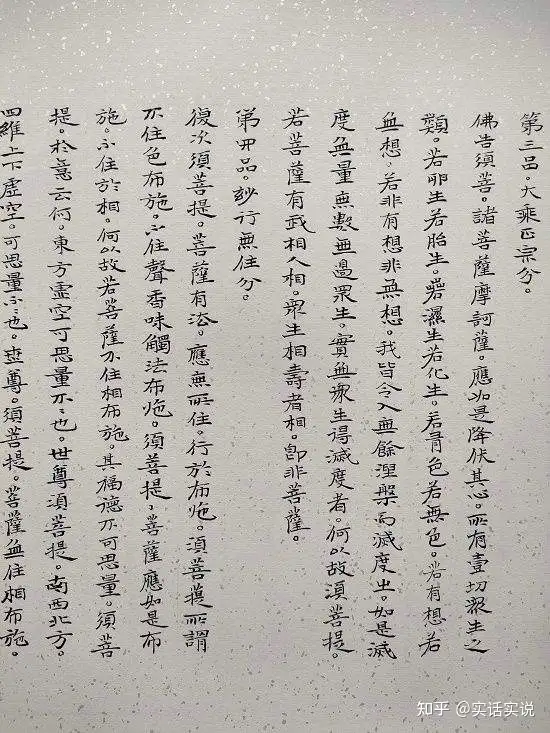 第三品。大乘正宗分。
佛告須菩。諸菩薩摩訶薩。應如是降伏其心。所有壹切眾生之
類。若卵生若胎生。若濕生若化生。若有色若無色。若有想若
無想。若非有想非無想。我皆令入無餘涅槃而滅度出。如是滅
度無量無數無邊眾生。實無眾生得滅度者。何以故須菩提。
若菩薩有我相人相。眾生相壽者相。即非菩薩。
第四品。妙行無住分。
復次須菩提。菩薩有法。應無所住。行於布施。須菩提所謂
不住色布施。不住聲香味觸法布施。須菩提、菩薩應如是布
施。不住於相。何以故若菩薩不住相布施。其福德不可思量。須菩
提。於意云何。東方虛空可思量不、也。世尊須菩提。南西北方。
四維上下虛空。可思量不、也。世尊。須菩提。菩薩無住相布施。
知乎 @实话实说